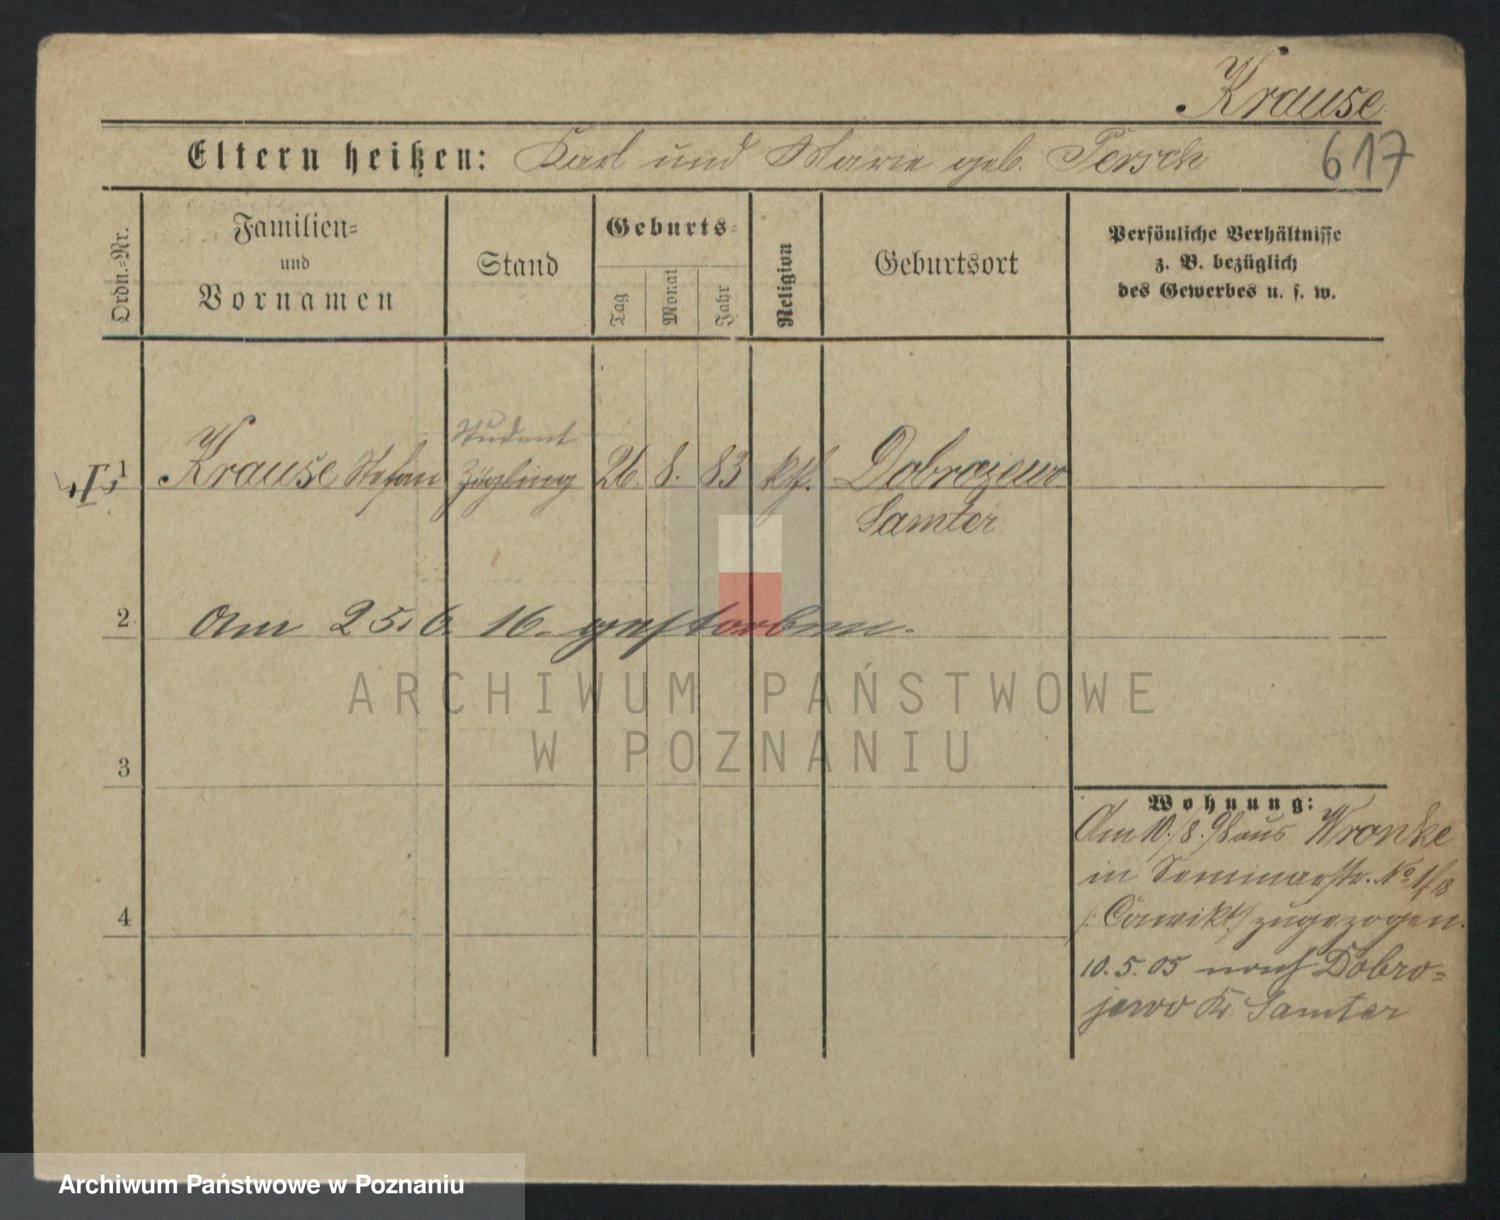 Krause
Eltern heißen: Karl und Marie geb. Persch
617
Ordn.-Nr.
Familien-
und
Vornamen
Stand
Geburts-
Tag
Monat
Jahr
Religion
Geburtsort
Persönliche Verhältnisse
z. B. bezüglich
des Gewerbes u. s. w.
Student
I, 1 Krause Stefan Zögling 26. 8. 83 kth. Dobrojewo
Samter
2 Am 25. 6. 16. gestorben.
ARCHIWUM PAŃSTWOWE
W POZNANIU
3
Wohnung:
Am 10./8. 98 aus Wronke
in Seminarstr. No
zugezogen.
4
10. 5. 05 nach Dobro-
jewo Kr Samter
Archiwum Państwowe w Poznaniu